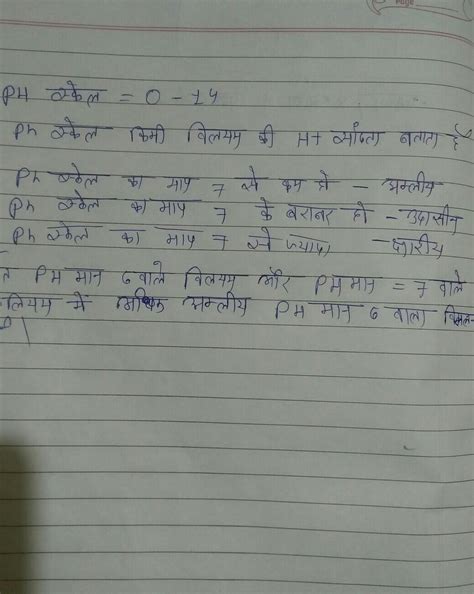 Page
PH स्केल = 0 - 14
Ph स्केल किसी विलयम की H+ सांद्रता बताता है
Ph स्केल का माप 7 से कम हो - अम्लीय
Ph स्केल का माप 7 के बराबर हो - उदासीन
Ph स्केल का माप 7 से ज्यादा - क्षारीय
त PH मान 6 वाले विलयम और PH मान = 7 वाले
लियम में अधिक अम्लीय PH मान 6 वाला